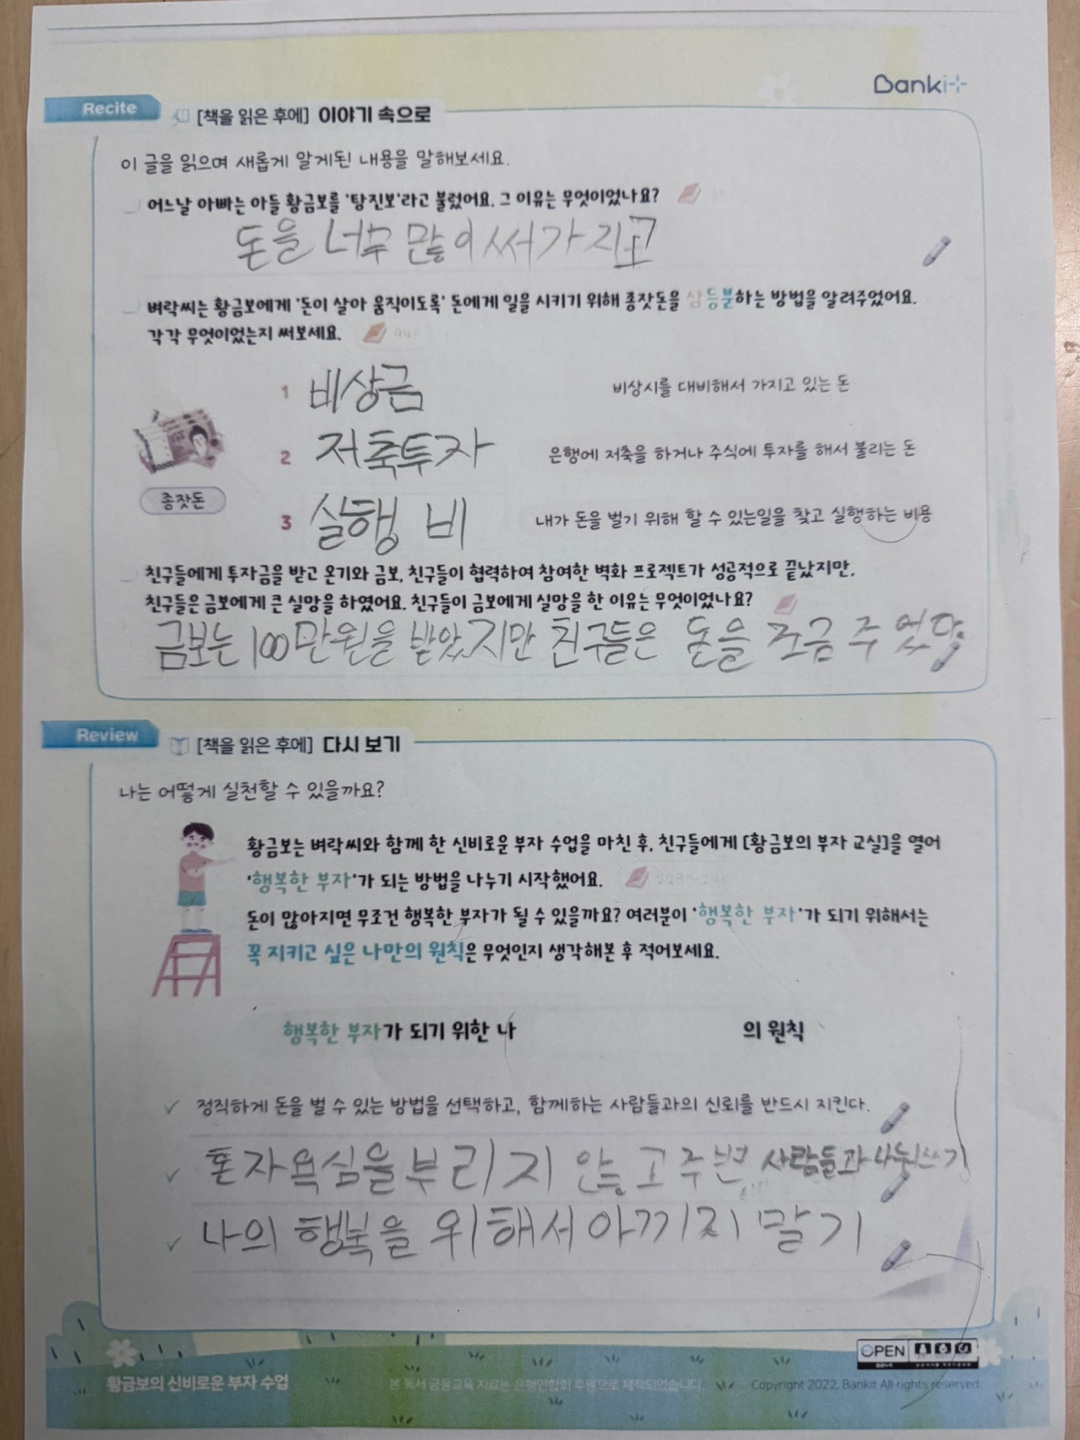 Banki
Recite
[책을 읽은 후에] 이야기 속으로
이 글을 읽으며 새롭게 알게된 내용을 말해보세요.
어느날 아빠는 아들 황금보를 '탕진보'라고 불렀어요. 그 이유는 무엇이었나요?
돈을 너무 많이 써가지고
벼락씨는 황금보에게 '돈이 살아 움직이도록' 돈에게 일을 시키기 위해 종잣돈을 삼등분하는 방법을 알려주었어요.
각각 무엇이었는지 써보세요.
1 비상금 비상시를 대비해서 가지고 있는 돈
2 저축투자 은행에 저축을 하거나 주식에 투자를 해서 불리는 돈
종잣돈
3 실행 비 내가 돈을 벌기 위해 할 수 있는일을 찾고 실행하는 비용
친구들에게 투자금을 받고 온기와 금보, 친구들이 협력하여 참여한 벽화 프로젝트가 성공적으로 끝났지만,
친구들은 금보에게 큰 실망을 하였어요. 친구들이 금보에게 실망을 한 이유는 무엇이었나요?
금보는 100만원을 받았지만 친구들은 돈을 조금 주었다
Review
[책을 읽은 후에] 다시 보기
나는 어떻게 실천할 수 있을까요?
황금보는 벼락씨와 함께 한 신비로운 부자 수업을 마친 후, 친구들에게 [황금보의 부자 교실]을 열어
'행복한 부자'가 되는 방법을 나누기 시작했어요.
돈이 많아지면 무조건 행복한 부자가 될 수 있을까요? 여러분이 '행복한 부자'가 되기 위해서는
꼭 지키고 싶은 나만의 원칙은 무엇인지 생각해본 후 적어보세요.
행복한 부자가 되기 위한 나 의 원칙
정직하게 돈을 벌 수 있는 방법을 선택하고, 함께하는 사람들과의 신뢰를 반드시 지킨다.
혼자욕심을부리지 않고주변 사람들과 나눠쓰기
나의 행복을 위해서아끼지 말기
OPEN
황금보의 신비로운 부자 수업
본 독서 금융교육 자료는 은행연합회 후원으로 제작되었습니다
Copyright 2022. Bankit All rights reserved.